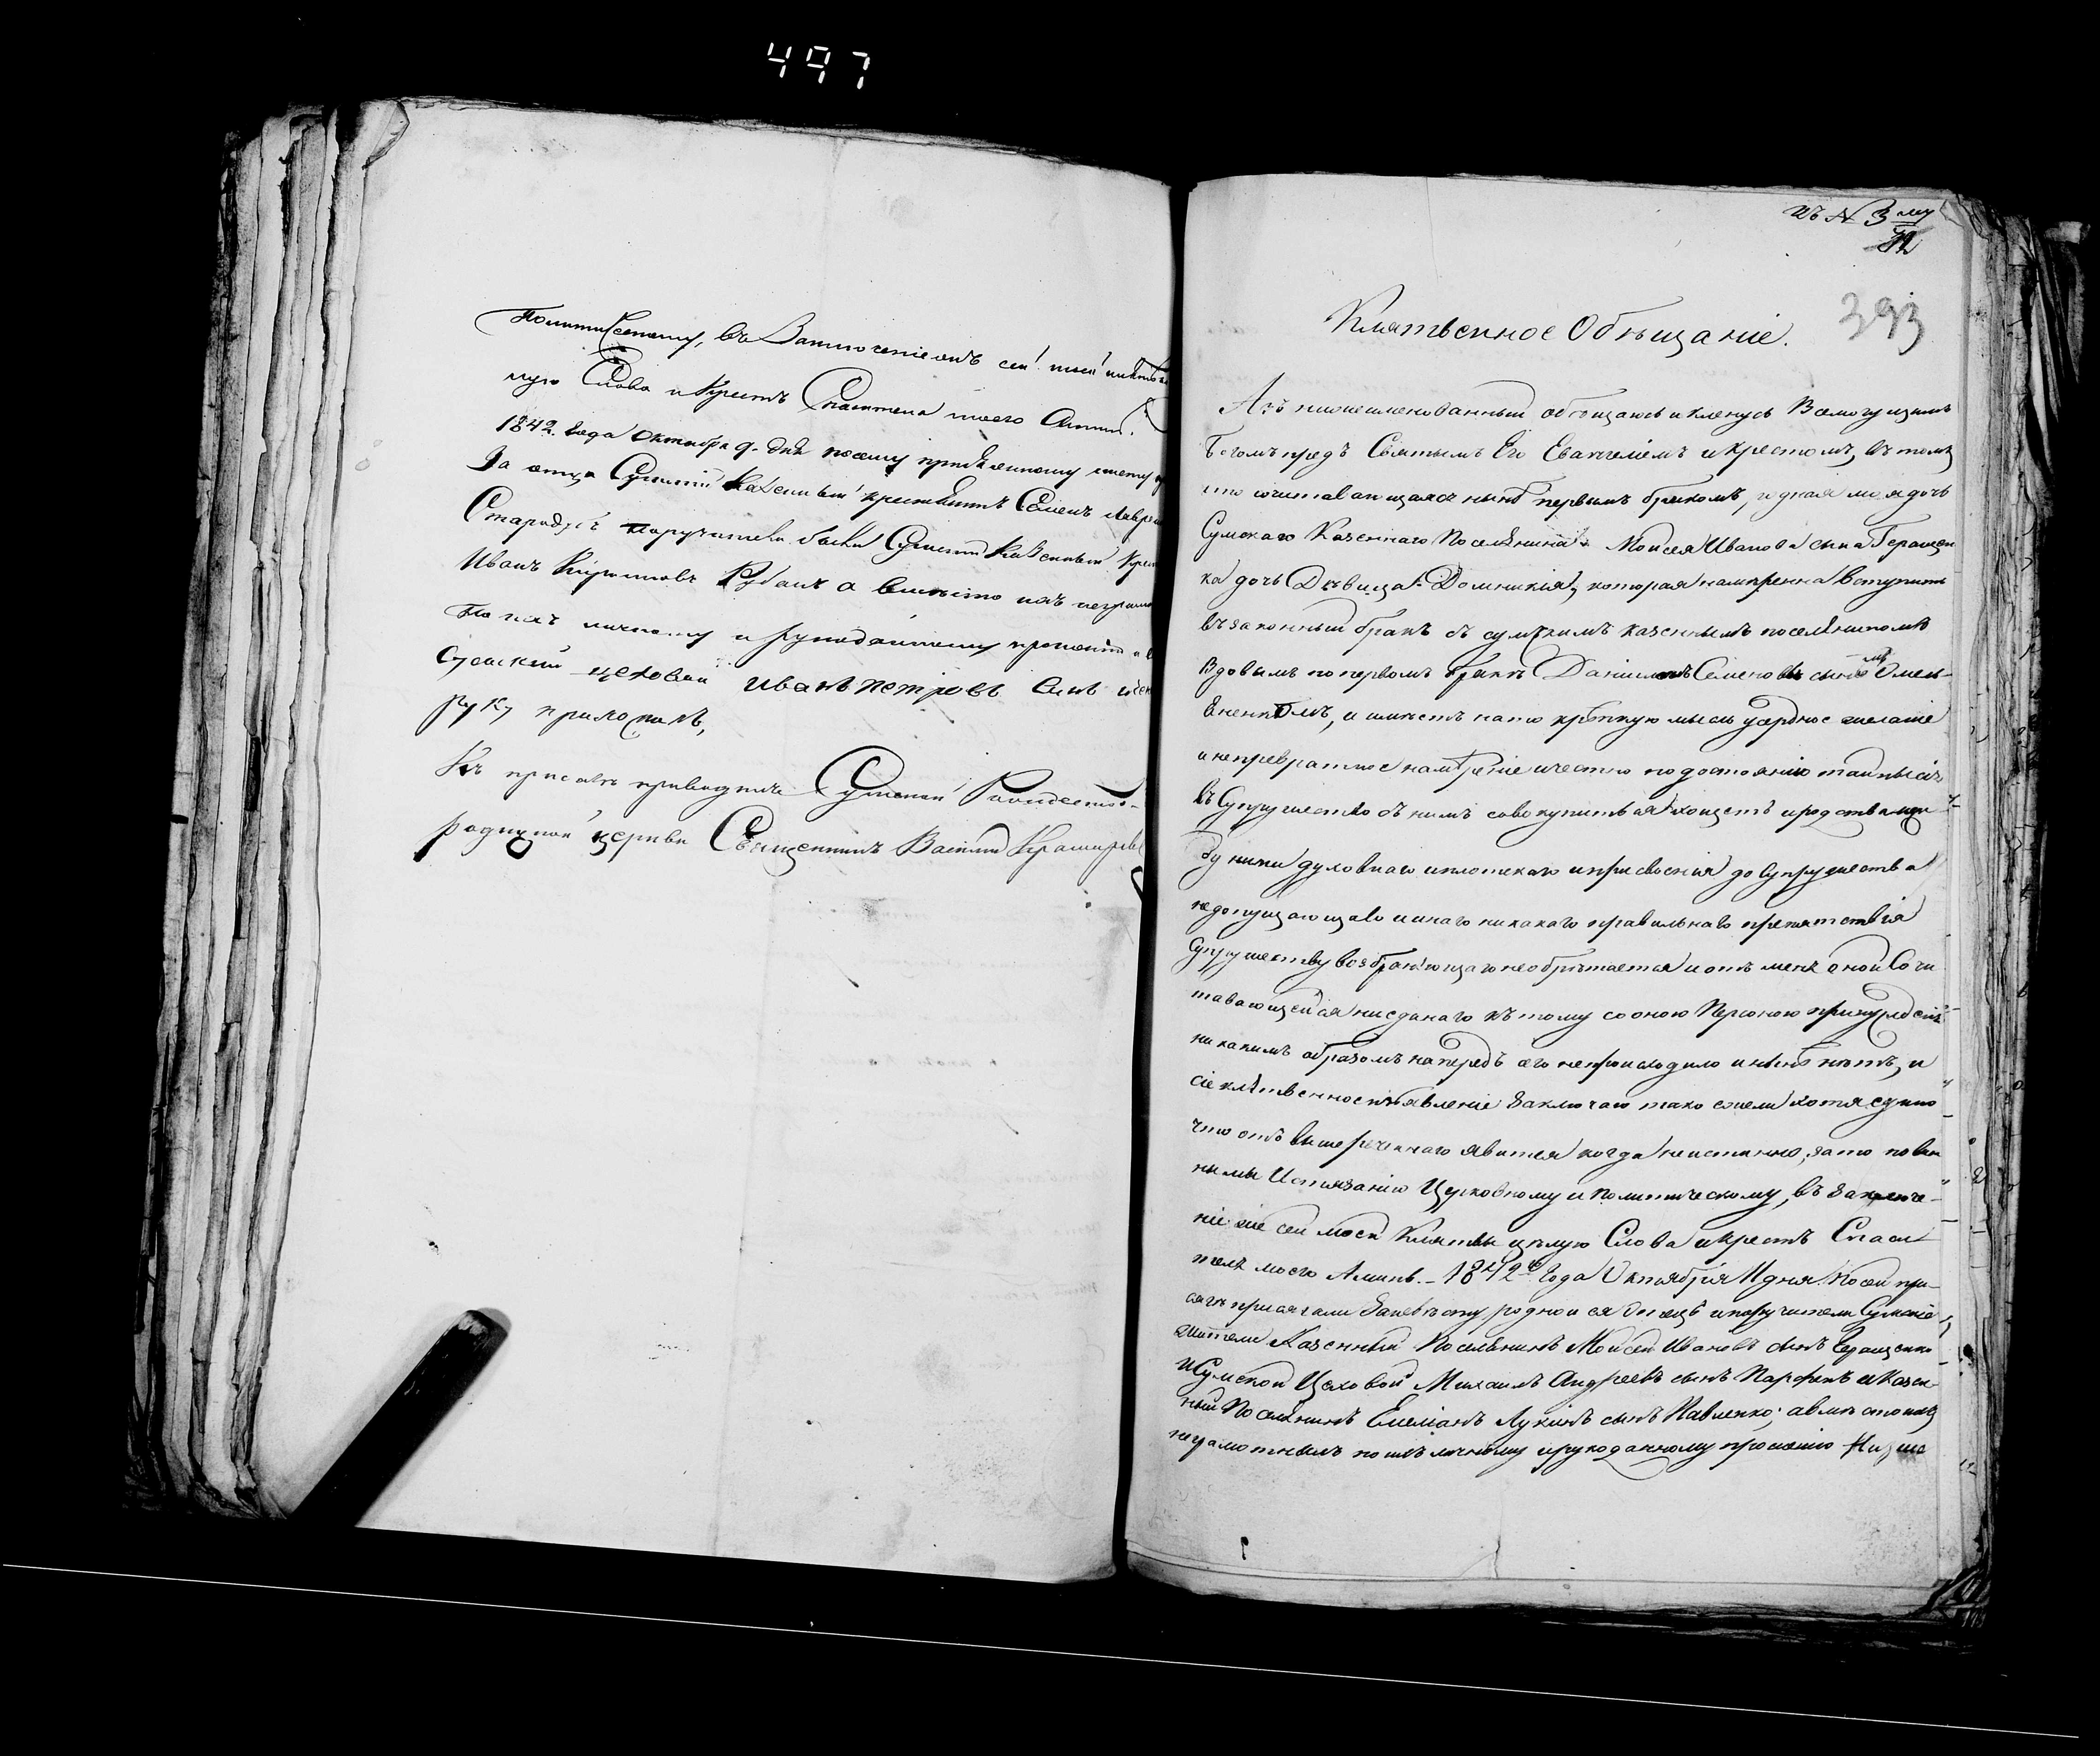 497
Политическому, въ Заключеніе жъ сей моей клятвы
лую Слова и Крестъ Спасителя моего Аминь.
1842. года Октября 9. дня по сему присяжному листу
За отца Сумскій Казенный крестьянинъ Семенъ Лавре
Стародубъ поручители были Сумскій Казенный Крес
Иванъ Кириловъ Рубанъ а вместо ихъ неграмо
По ихъ личному и рукоданному прошенію
Сумский цеховой Иванъ Петровъ Сынъ
руку приложилъ,
Къ присягѣ приводилъ Сумской Рождество-
родичной церкви Священникъ Василій
Къ N 3му
12
393
Клятвенное Обѣщаніе.
Азъ нижеименованный обѣщаюсь и кленусь Всемогущимъ
Богомъ предъ Святымъ Его Евангеліемъ и крестомъ, въ томъ
что сочитавающаяся нынѣ первымъ бракомъ, родная моя дочь
Сумскаго Казеннаго Поселянина Моисея Иванова сына Геращен
ка дочь Дѣвица Домникія, которая намѣренна вступить
въ законный бракъ съ сумскимъ казеннымъ поселяниномъ
Вдовымъ по первомъ бракѣ Даніиломъ Семеновымъ сыномъ Омель-
яненкомъ, и имѣетъ на то крѣпкую мысль усердное желаніе
и непревратное намѣреніе и честно по достоянію тайны сея
въ Супружество съ нимъ совокупиться хощетъ и родства меж
ду ними духовнаго и плотскаго и присвоенія до Супружества
недопущающаго и инаго никакаго правильнаго препятствія
Супружеству возбраняющаго не обрѣтается и отъ меня оной Сочи
тавающейся ни сданаго къ тому со оною Персоною принужденія
никакимъ образомъ напредъ сего не происходило и нынѣ нѣтъ, и
сіе клятвенное объявленіе Заключаю тако ежели хотя едино
что отъ вышереченнаго явится когда неистинно, за то повин
ны мы Истязанію Церковному и политическому, въ заключе-
ніе же сей моей Клятвы цѣлую Слова и Крестъ Спаси
теля моего Аминь. - 1842го Года Октября 11 дня. По сей при-
сягѣ присягали За невѣсту родной ея Отецъ и поручители Сумскіе
жители Казенный Поселянинъ Моисей Ивановъ сынъ Геращенко
и Сумской Цеховой Михаилъ Андреевъ сынъ Парфенъ и Казен-
ный Поселянинъ Емеліанъ Лукинъ сынъ Павленко; а вмѣсто ихъ
неграмотныхъ по ихъ личному и рукоданному прошенію